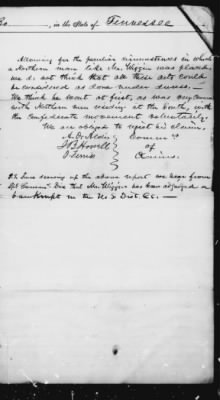 Co. , in the State of Tennessee
Allowing for the peculiar circumstances in which
a Northern man like Mr. Wiggins was placed
we do not think that all these acts could
be considered as done under duress.
We think he went at first, as was very common
with Northern men residing at the South, with
the Confederate movement voluntarily.
We are obliged to reject his claim.
A. O. Aldis
J. B. Howell
O. Ferriss
Comm'rs
of
Claims.
P.S. Since sending up the above report we hear from
Spl Comm'r that Mr. Wiggins has been adjudged a
bankrupt in the U.S. Dist. Ct. —